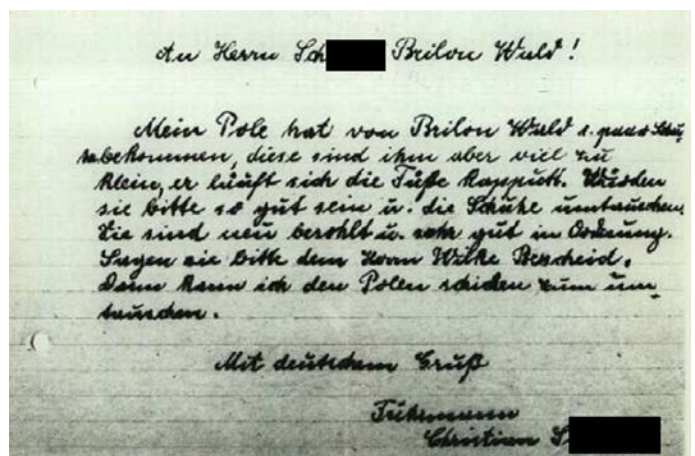 An Herrn Sch Brilon Wald!
Mein Pole hat von Brilon Wald 1. paar Schu
he bekommen, diese sind ihm aber viel zu
klein, er läuft sich die Füße kapputt. Würden
sie bitte so gut sein u. die Schuhe umtauschen.
Sie sind neu besohlt u. sehr gut in Ordnung.
Sagen sie bitte dem Herrn Wilke Bescheid.
Dann kann ich den Polen schicken zum um-
tauschen.
Mit deutschem Gruß
Fuhrmann
Christian S